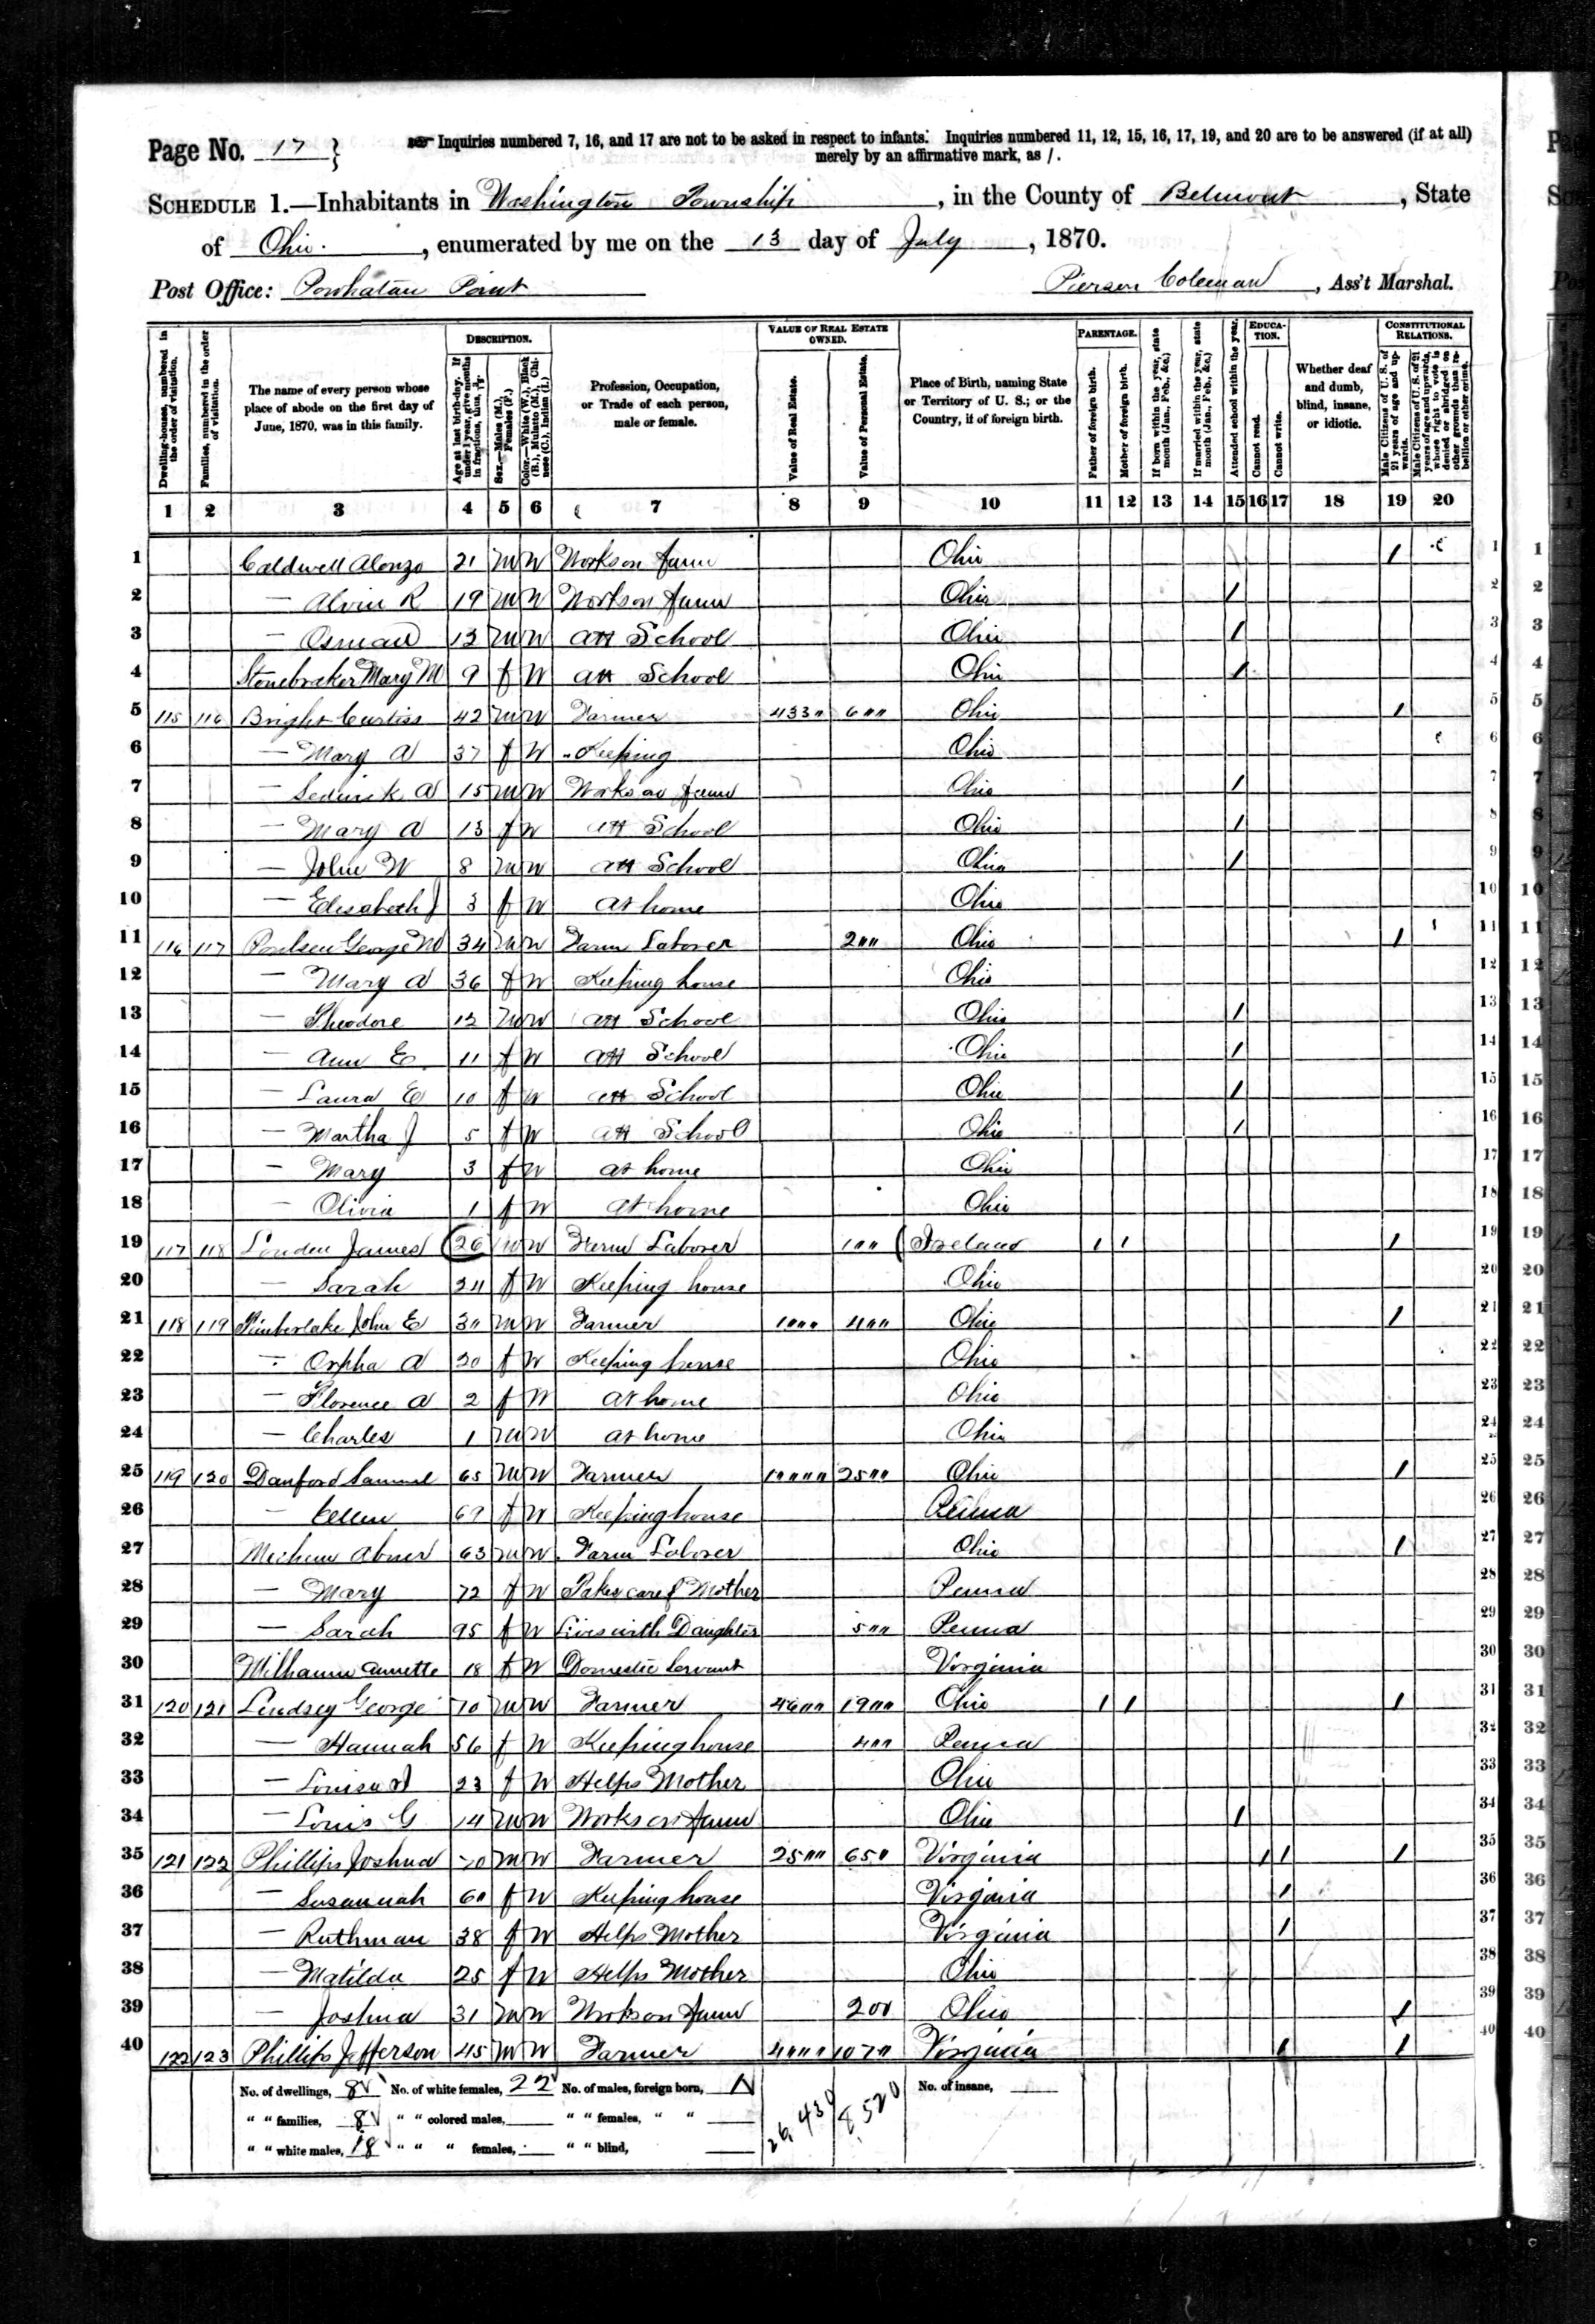 Page No. 17 }
Inquiries numbered 7, 16, and 17 are not to be asked in respect to infants. Inquiries numbered 11, 12, 15, 16, 17, 19, and 20 are to be answered (if at all)
merely by an affirmative mark, as /.
SCHEDULE 1.—Inhabitants in Washington Township, in the County of Belmont, State
of Ohio, enumerated by me on the 13 day of July, 1870.
Post Office: Powhatan Point Pierson Coleman, Ass't Marshal.
Dwelling-houses, numbered in the order of visitation.
Families, numbered in the order of visitation.
The name of every person whose place of abode on the first day of June, 1870, was in this family.
DESCRIPTION.
Age at last birth-day. If under 1 year, give months in fractions, thus,
Sex.—Males (M.), Females (F.)
Color.—White (W.), Black (B.), Mulatto (M.), Chinese (C.), Indian (I.)
Profession, Occupation, or Trade of each person, male or female.
VALUE OF REAL ESTATE OWNED.
Value of Real Estate.
Value of Personal Estate.
Place of Birth, naming State or Territory of U. S.; or the Country, if of foreign birth.
PARENTAGE.
Father of foreign birth.
Mother of foreign birth.
If born within the year, state month (Jan., Feb., &c.)
If married within the year, state month (Jan., Feb., &c.)
Attended school within the year.
EDUCATION.
Cannot read.
Cannot write.
Whether deaf and dumb, blind, insane, or idiotic.
CONSTITUTIONAL RELATIONS.
Male Citizens of U. S. of 21 years of age and upwards.
Male Citizens of U. S. of 21 years of age and upwards, whose right to vote is denied or abridged on other grounds than rebellion or other crime.
1 2 3 4 5 6 7 8 9 10 11 12 13 14 15 16 17 18 19 20
1 Caldwell Alonzo 21 M W Works on farm Ohio / 1
2 — Alvin R 19 M W Works on farm Ohio / 2
3 — Osman 13 M W Att School Ohio / 3
4 Stonebraker Mary M 9 f W Att School Ohio / 4
5 115 116 Bright Curtiss 42 M W Farmer 433" 6"" Ohio / 5
6 — Mary A 37 f W " Keeping Ohio 6
7 — Sedwick A 15 M W Works on farm Ohio / 7
8 — Mary A 13 f W Att School Ohio / 8
9 — John W 8 M W Att School Ohio / 9
10 — Elisabeth J 3 f W At home Ohio 10
11 116 117 George W 34 M W Farm Laborer 2"" Ohio / 11
12 — Mary A 36 f W Keeping house Ohio 12
13 — Theodore 12 M W Att School Ohio / 13
14 — Ann E. 11 f W Att School Ohio / 14
15 — Laura E 10 f W Att School Ohio / 15
16 — Martha J 5 f W Att School Ohio / 16
17 — Mary 3 f W At home Ohio 17
18 — Olivia 1 f W At home Ohio 18
19 117 118 Louden James 26 M W Farm Laborer 1"" Ireland / / / 19
20 — Sarah 24 f W Keeping house Ohio 20
21 118 119 Timberlake John E 3" M W Farmer 1""" 4"" Ohio / 21
22 — Orpha A 20 f W Keeping house Ohio 22
23 — Florence A 2 f W At home Ohio 23
24 — Charles 1 M W At home Ohio 24
25 119 120 Danford Samuel 65 M W Farmer 1"""" 25"" Ohio / 25
26 — Ellen 69 f W Keeping house Penna 26
27 Abner 63 M W Farm Laborer Ohio / 27
28 — Mary 72 f W Takes care of Mother Penna 28
29 — Sarah 95 f W Lives with Daughter 5"" Penna 29
30 Annette 18 f W Domestic Servant Virginia 30
31 120 121 Lindsey George 70 M W Farmer 46"" 19"" Ohio / / / 31
32 — Hannah 56 f W Keeping house 4"" Penna 32
33 — Louisa 23 f W Helps Mother Ohio 33
34 — Louis G 14 M W Works on farm Ohio / 34
35 121 122 Phillips Joshua 70 M W Farmer 25"" 65" Virginia / / / 35
36 — Susannah 6" f W Keeping house Virginia / 36
37 — Ruthman 38 f W Helps Mother Virginia / 37
38 — Matilda 25 f W Helps Mother Ohio 38
39 — Joshua 31 M W Works on farm 200 Ohio / 39
40 122 123 Phillips Jefferson 45 M W Farmer 4""" 107" Virginia / / 40
No. of dwellings, 8 No. of white females, 22 No. of males, foreign born, 1 26,430 8520 No. of insane,
" " families, 8 " " colored males, " " females, " "
" " white males, 18 " " " females, " " blind,